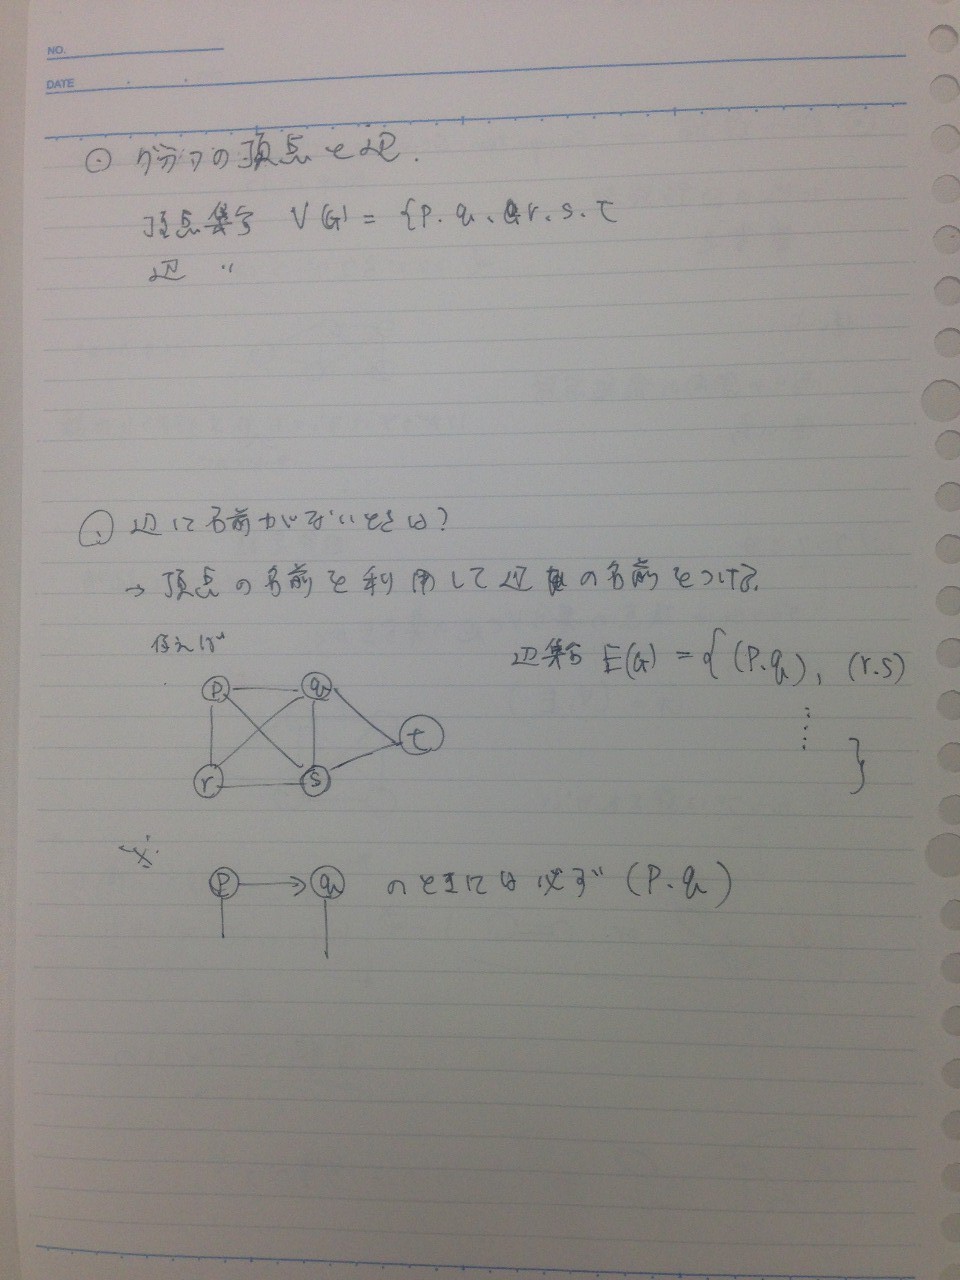 NO.
DATE
⊙ グラフの頂点と辺.
頂点集合 V(G) = {p. q. r. s. t
辺 〃
辺に名前がないときは?
→ 頂点の名前を利用して辺の名前をつける.
例えば
辺集合 E(G) = { (p.q), (r.s)
⋮
}
p q
t
r s
※
p q のときには必ず (p.q)